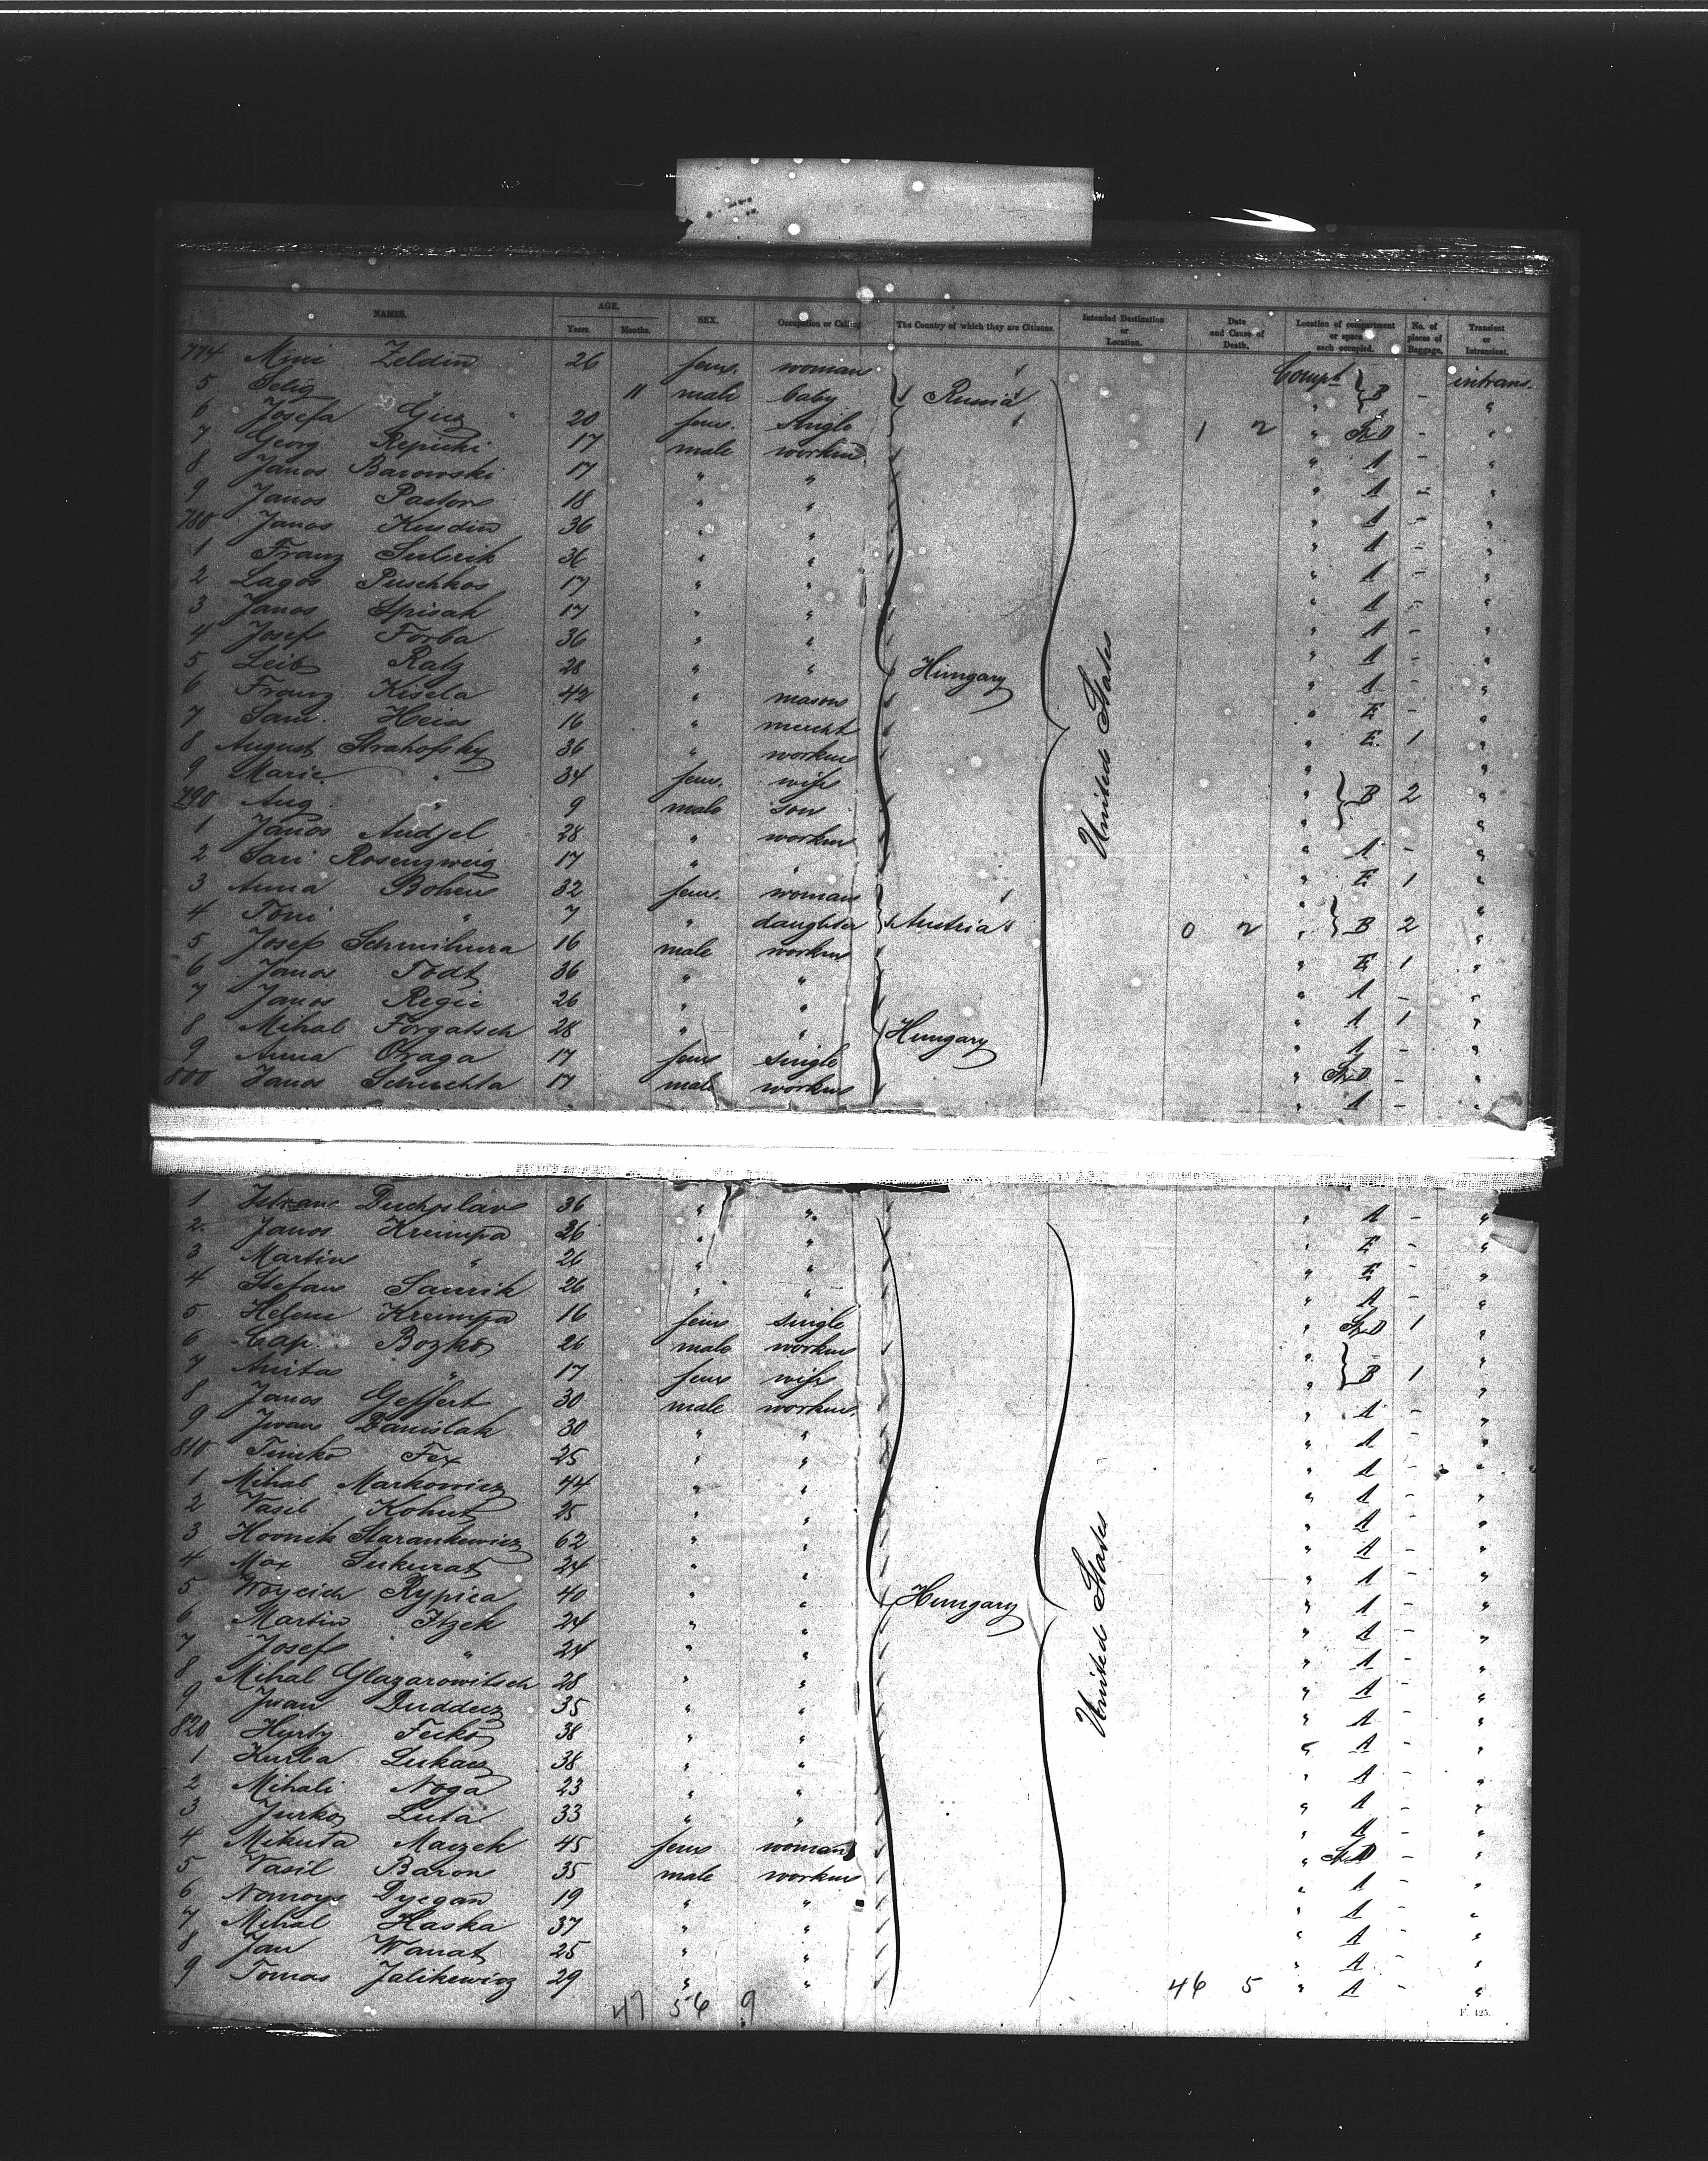 NAMES. AGE. Years. Months. SEX. Occupation or Calling. The Country of which they are Citizens. Intended Destination or Location. Date and Cause of Death. Location of compartment or space each occupied. No. of pieces of Baggage. Transient or Intransient.
774 Mini Zeldin 26 fem. woman Compt intrans.
5 Selig " 11 male baby Russia B - "
6 Josefa Giez 20 fem. single 1 2 " - "
7 Georg Repicki 17 male workm " A - "
8 Janos Barowski 17 " " " A - "
9 Janos Pastor 18 " " " A - "
780 Janos Kusdin 36 " " " A - "
1 Franz Sulerik 36 " " " A - "
2 Lagos Puschkos 17 " " " A - "
3 Janos Spisak 17 " " " A - "
4 Josef Forba 36 " " " A - "
5 Leib Ratz 28 " " Hungary " A - "
6 Franz Kisela 42 " mason United States " E - "
7 Sam. Heiss 16 " mercht " E. 1 "
8 August Strahofsky 36 " workm " "
9 Marie " 34 fem. wife " B 2 "
790 Aug. " 9 male son " "
1 Janos Andjel 28 " workm " A - "
2 Sari Rosenzweig 17 " " " E 1 "
3 Anna Bohen 32 fem. woman " "
4 Toni " 7 " daughter Austria 0 2 " B 2 "
5 Josef Schmihura 16 male workm " E 1 "
6 Janos Todt 36 " " " A - "
7 Janos Regie 26 " " " A 1 "
8 Mihal Forgatsch 28 " " Hungary " A - "
9 Anna Oraga 17 fem single " - "
800 Janos Schuschta 17 male workm " A - "
1 Duchplav 36 " " " A - "
2 Janos Krempa 26 " " " E - "
3 Martin " 26 " " " E - "
4 Stefan Saurik 26 " " " A - "
5 Helene Krempa 16 fem single " 1 "
6 Cap. Bozko 26 male workm " "
7 Anita " 17 fem wife " B 1 "
8 Janos Geffert 30 male workm. " A - "
9 Iwan Banislak 30 " " " A - "
810 Timko Fex 25 " " " A - "
1 Mihal Markowicz 44 " " " A - "
2 Vasil Kohut 25 " " " A - "
3 Hoonik Starankewicz 62 " " " A - "
4 Max Sukurat 24 " " " A - "
5 Woycich Rypica 40 " " Hungary United States " A - "
6 Martin Itzek 24 " " " A - "
7 Josef " 24 " " " A - "
8 Mihal Glazarowitsch 28 " " " A - "
9 Iwan Duddecz 35 " " " A - "
820 Hyrty Fecko 38 " " " A - "
1 Kurka Lukacz 38 " " " A - "
2 Mihali Noga 23 " " " A - "
3 Jurko Luta 33 " " " A - "
4 Mikuta Maczek 45 fem woman " - "
5 Vasil Baron 35 male workm " A - "
6 Nomoys Dyegan 19 " " " A - "
7 Mihal Haska 37 " " " A - "
8 Jan Wanat 25 " " " A - "
9 Tomas Jalikewicz 29 " " 46 5 " A - "
47 56 9
F. 425.